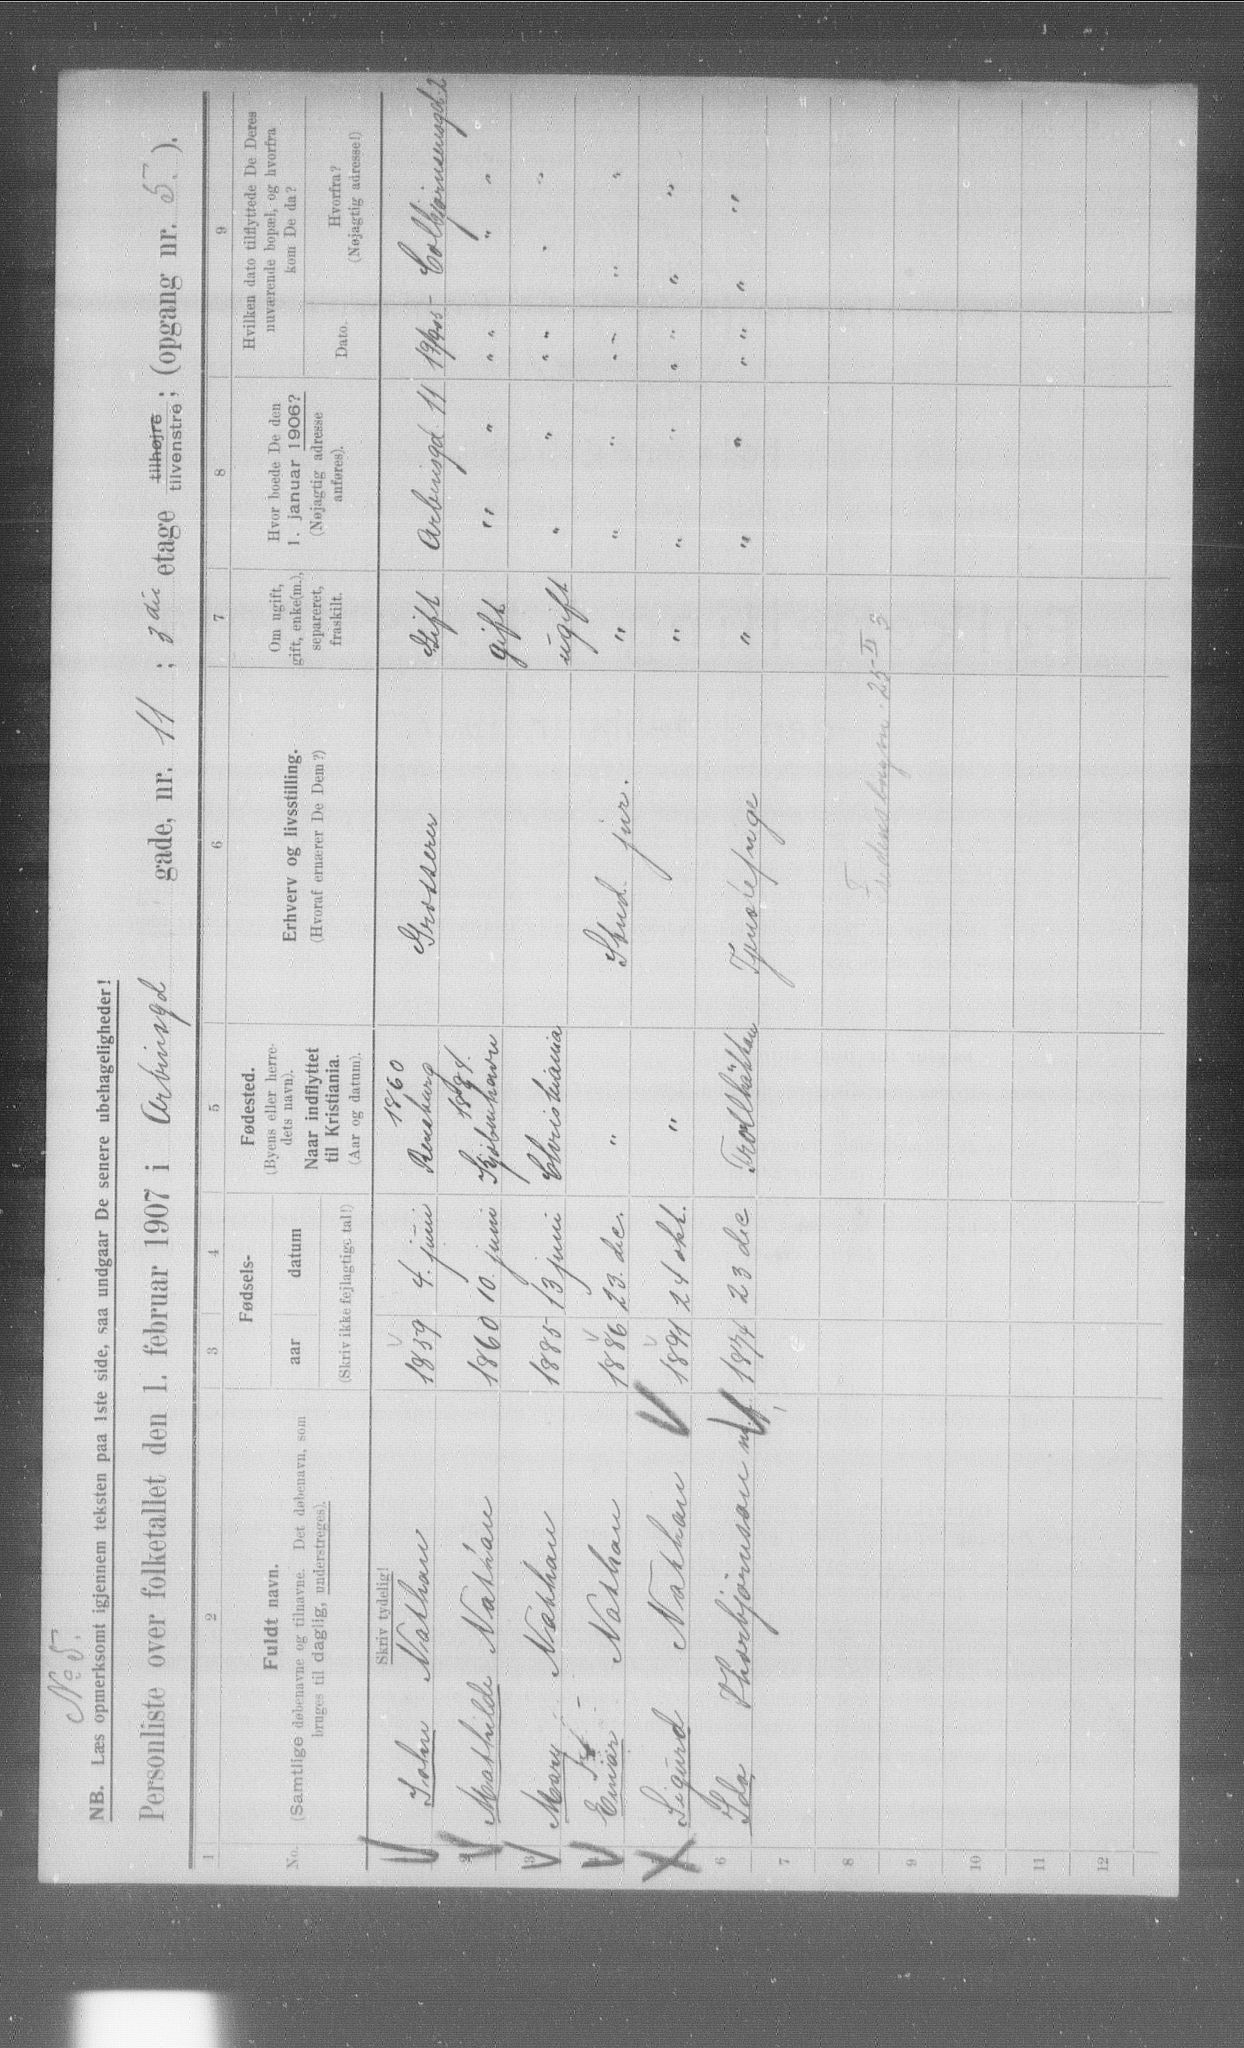 No 5.
NB. Læs opmerksomt igjennem teksten paa 1ste side, saa undgaar De senere ubehageligheder!
Personliste over folketallet den 1. februar 1907 i Arbinsgd gade, nr. 11 ; 3die etage tilhøjre tilvenstre ; (opgang nr. 5. ).
1 2 3 4 5 6 7 8 9
No. Fuldt navn. (Samtlige døbenavne og tilnavne. Det døbenavn, som bruges til daglig, understreges).
Fødsels- aar datum (Skriv ikke fejlagtige tal!)
Fødested. (Byens eller herredets navn). Naar indflyttet til Kristiania. (Aar og datum).
Erhverv og livsstilling. (Hvoraf ernærer De Dem?)
Om ugift, gift, enke(m.), separeret, fraskilt.
Hvor boede De den 1. januar 1906? (Nøjagtig adresse anføres).
Hvilken dato tilflyttede De Deres nuværende bopæl, og hvorfra kom De da?
Dato. Hvorfra? (Nøjagtig adresse!)
Skriv tydelig!
John Nathan 1859 4. juni Rensburg 1860 Grosserer Gift Arbinsgd. 11 Colbjørnsensgd. 2
2 Mathilde Nathan 1860 10. juni Kjøbenhavn 1884. gift " " " " " "
3 Mary Nathan 1885 13 juni Christiania ugift " " " " " "
4 Einar Nathan 1886 23. dec. " Stud. jur. " " " " " " "
5 Sigurd Nathan 1891 24 okt. " " " " " " " "
6 Ida Thorbjörnson 1874 23 dec Trollhättan Tjenestepige " " " " " " "
7
8
9
10
11
12